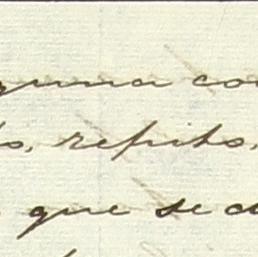 guma co
o, repito,
que se d